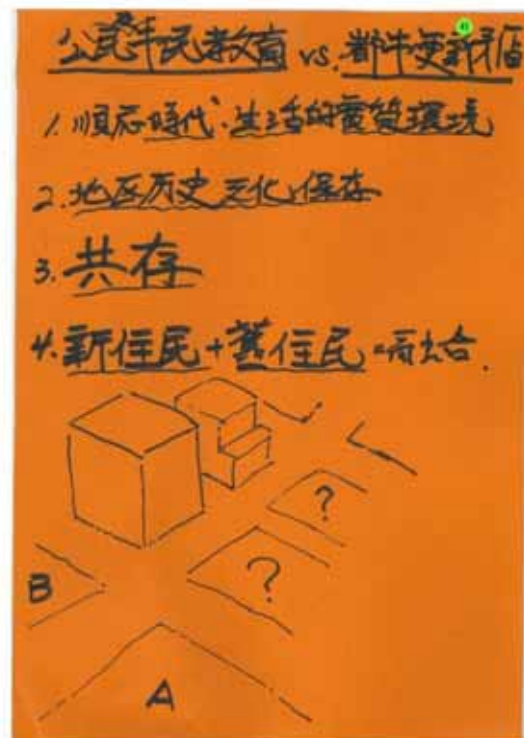 公民平民教育 vs. 都市更新
1. 順应時代、生活的實質環境
2. 地区历史文化保存
3. 共存
4. 新住民+舊住民 融合.
?
?
B
A